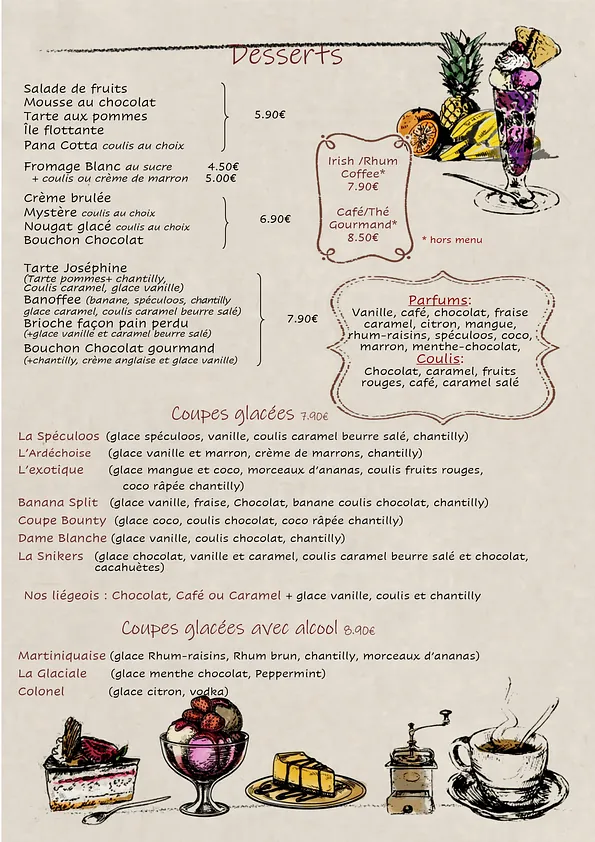 Desserts
Salade de fruits
Mousse au chocolat
Tarte aux pommes
Île flottante
Pana Cotta coulis au choix
5.90€
Fromage Blanc au sucre 4.50€
+ coulis ou crème de marron 5.00€
Crème brulée
Mystère coulis au choix
Nougat glacé coulis au choix
Bouchon Chocolat
6.90€
Irish /Rhum
Coffee*
7.90€
Café/Thé
Gourmand*
8.50€
* hors menu
Tarte Joséphine
(Tarte pommes+ chantilly,
Coulis caramel, glace vanille)
Banoffee (banane, spéculoos, chantilly
glace caramel, coulis caramel beurre salé)
Brioche façon pain perdu
(+glace vanille et caramel beurre salé)
Bouchon Chocolat gourmand
(+chantilly, crème anglaise et glace vanille)
7.90€
Parfums:
Vanille, café, chocolat, fraise
caramel, citron, mangue,
rhum-raisins, spéculoos, coco,
marron, menthe-chocolat,
Coulis:
Chocolat, caramel, fruits
rouges, café, caramel salé
Coupes glacées 7.90€
La Spéculoos (glace spéculoos, vanille, coulis caramel beurre salé, chantilly)
L'Ardéchoise (glace vanille et marron, crème de marrons, chantilly)
L'exotique (glace mangue et coco, morceaux d'ananas, coulis fruits rouges,
coco râpée chantilly)
Banana Split (glace vanille, fraise, Chocolat, banane coulis chocolat, chantilly)
Coupe Bounty (glace coco, coulis chocolat, coco râpée chantilly)
Dame Blanche (glace vanille, coulis chocolat, chantilly)
La Snikers (glace chocolat, vanille et caramel, coulis caramel beurre salé et chocolat,
cacahuètes)
Nos liégeois : Chocolat, Café ou Caramel + glace vanille, coulis et chantilly
Coupes glacées avec alcool 8.90€
Martiniquaise (glace Rhum-raisins, Rhum brun, chantilly, morceaux d'ananas)
La Glaciale (glace menthe chocolat, Peppermint)
Colonel (glace citron, vodka)